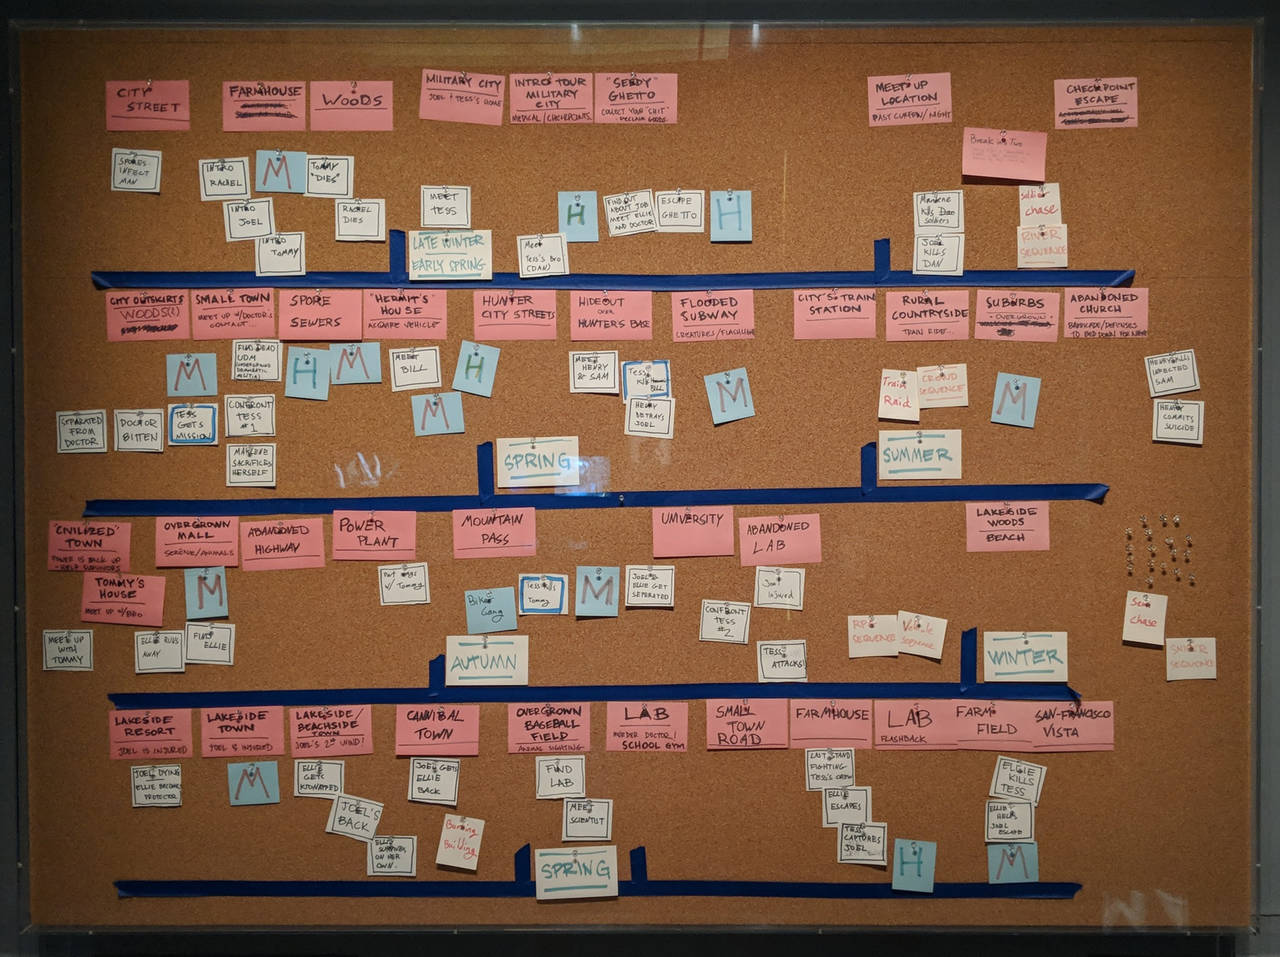 CITY
STREET
FARMHOUSE
WOODS
MILITARY CITY
JOEL + TESS'S HOME
INTRO TOUR
MILITARY
CITY
MEDICAL/CHECKPOINTS
"SEEDY"
GHETTO
COLLECT YOUR "SHIT"
DECLAIM GOODS
MEET UP
LOCATION
PAST CURFEW/NIGHT
CHECKPOINT
ESCAPE
Break into Two
SPORES
INFECT
MAN
INTRO
RACHEL
M
TOMMY
"DIES"
INTRO
JOEL
RACHEL
DIES
INTRO
TOMMY
MEET
TESS
LATE WINTER
EARLY SPRING
Meet
Tess's Bro
(DAN)
H
FIND OUT
ABOUT JOB
MEET ELLIE
AND DOCTOR
ESCAPE
GHETTO
H
Marlene
Kills Dan
soldiers
JOEL
KILLS
DAN
soldier
chase
RIVER
SEQUENCE
CITY OUTSKIRTS
WOODS(?)
SMALL TOWN
MEET UP W/DOCTOR'S
CONTACT...
SPORE
SEWERS
"HERMIT'S"
HOUSE
ACQUIRE VEHICLE
HUNTER
CITY STREETS
HIDEOUT
OVER
HUNTERS BASE
FLOODED
SUBWAY
CREATURES/FLASHLIGHT
CITY'S TRAIN
STATION
RURAL
COUNTRYSIDE
TRAIN RIDE...
SUBURBS
- OVERGROWN -
ABANDONED
CHURCH
BARRICADE/DEFENSES
TO BED DOWN FOR NIGHT
M
FIND DEAD
UDM
H
M
MEET
BILL
H
MEET
HENRY
& SAM
TESS
KILLS
BILL
M
Train
Raid
CROWD
SEQUENCE
M
HENRY KILLS
INFECTED
SAM
SEPARATED
FROM
DOCTOR
DOCTOR
BITTEN
TESS
GETS
MISSION
CONFRONT
TESS
#1
M
HENRY
BETRAYS
JOEL
HENRY
COMMITS
SUICIDE
MARLENE
SACRIFICES
HERSELF
SPRING
SUMMER
"CIVILIZED" TOWN
POWER IS BACK UP
- HELP SURVIVORS
OVERGROWN
MALL
SERENE/ANIMALS
ABANDONED
HIGHWAY
POWER
PLANT
MOUNTAIN
PASS
UNIVERSITY
ABANDONED
LAB
LAKESIDE
WOODS
BEACH
TOMMY'S
HOUSE
MEET UP W/BRO
M
Part ways
w/ Tommy
Bike
Gang
Tess Kills
Tommy
M
JOEL &
ELLIE GET
SEPERATED
Joel
Injured
MEET UP
WITH
TOMMY
ELLIE RUNS
AWAY
FIND
ELLIE
CONFRONT
TESS
#2
TESS
ATTACKS!
RPG
SEQUENCE
Vehicle
Sequence
chase
SNIPER
SEQUENCE
AUTUMN
WINTER
LAKESIDE
RESORT
JOEL IS INJURED
LAKESIDE
TOWN
JOEL IS INJURED
LAKESIDE/
BEACHSIDE
TOWN
JOEL'S 2ND WIND!
CANNIBAL
TOWN
OVERGROWN
BASEBALL
FIELD
ANIMAL SIGHTING
LAB
MURDER DOCTOR!
SCHOOL GYM
SMALL
TOWN
ROAD
FARMHOUSE
LAB
FLASHBACK
FARM
FIELD
SAN-FRANCISCO
VISTA
JOEL DYING
ELLIE BECOMES
PROTECTOR
M
ELLIE
GETS
KIDNAPPED
JOEL GETS
ELLIE
BACK
FIND
LAB
LAST STAND
FIGHTING
TESS'S CREW
ELLIE
KILLS
TESS
JOEL'S
BACK
Burning
Building
MEET
SCIENTIST
ELLIE
ESCAPES
ELLIE
HELPS
JOEL
ESCAPE
ELLIE
SURVIVES
ON HER
OWN.
TESS
CAPTURES
JOEL
H
M
SPRING